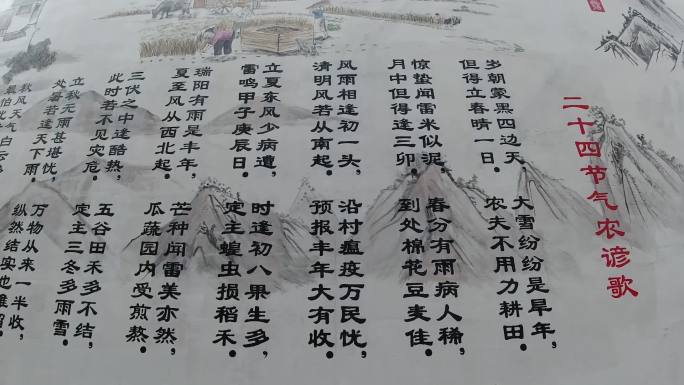 二十四节气农谚歌
岁朝蒙黑四边天,
大雪纷纷是旱年,
但得立春晴一日.
农夫不用力耕田.
惊蛰闻雷米似泥,
春分有雨病人稀,
月中但得逢三卯,
到处棉花豆麦佳.
风雨相逢初一头,
沿村瘟疫万民忧,
清明风若从南起.
预报丰年大有收.
立夏东风少病遭,
时逢初八果生多,
雷鸣甲子庚辰日.
定主蝗虫损稻禾.
瑞阳有雨是丰年,
芒种闻雷美亦然,
夏至风从西北起.
瓜蔬园内受煎熬.
三伏之中逢酷热,
五谷田禾多不结,
此时若不见灾危.
定主三冬多雨雪.
立秋无雨甚堪忧,
万物从来一半收,
处暑若逢天下雨.
纵然结实也难留.
秋风天气白云